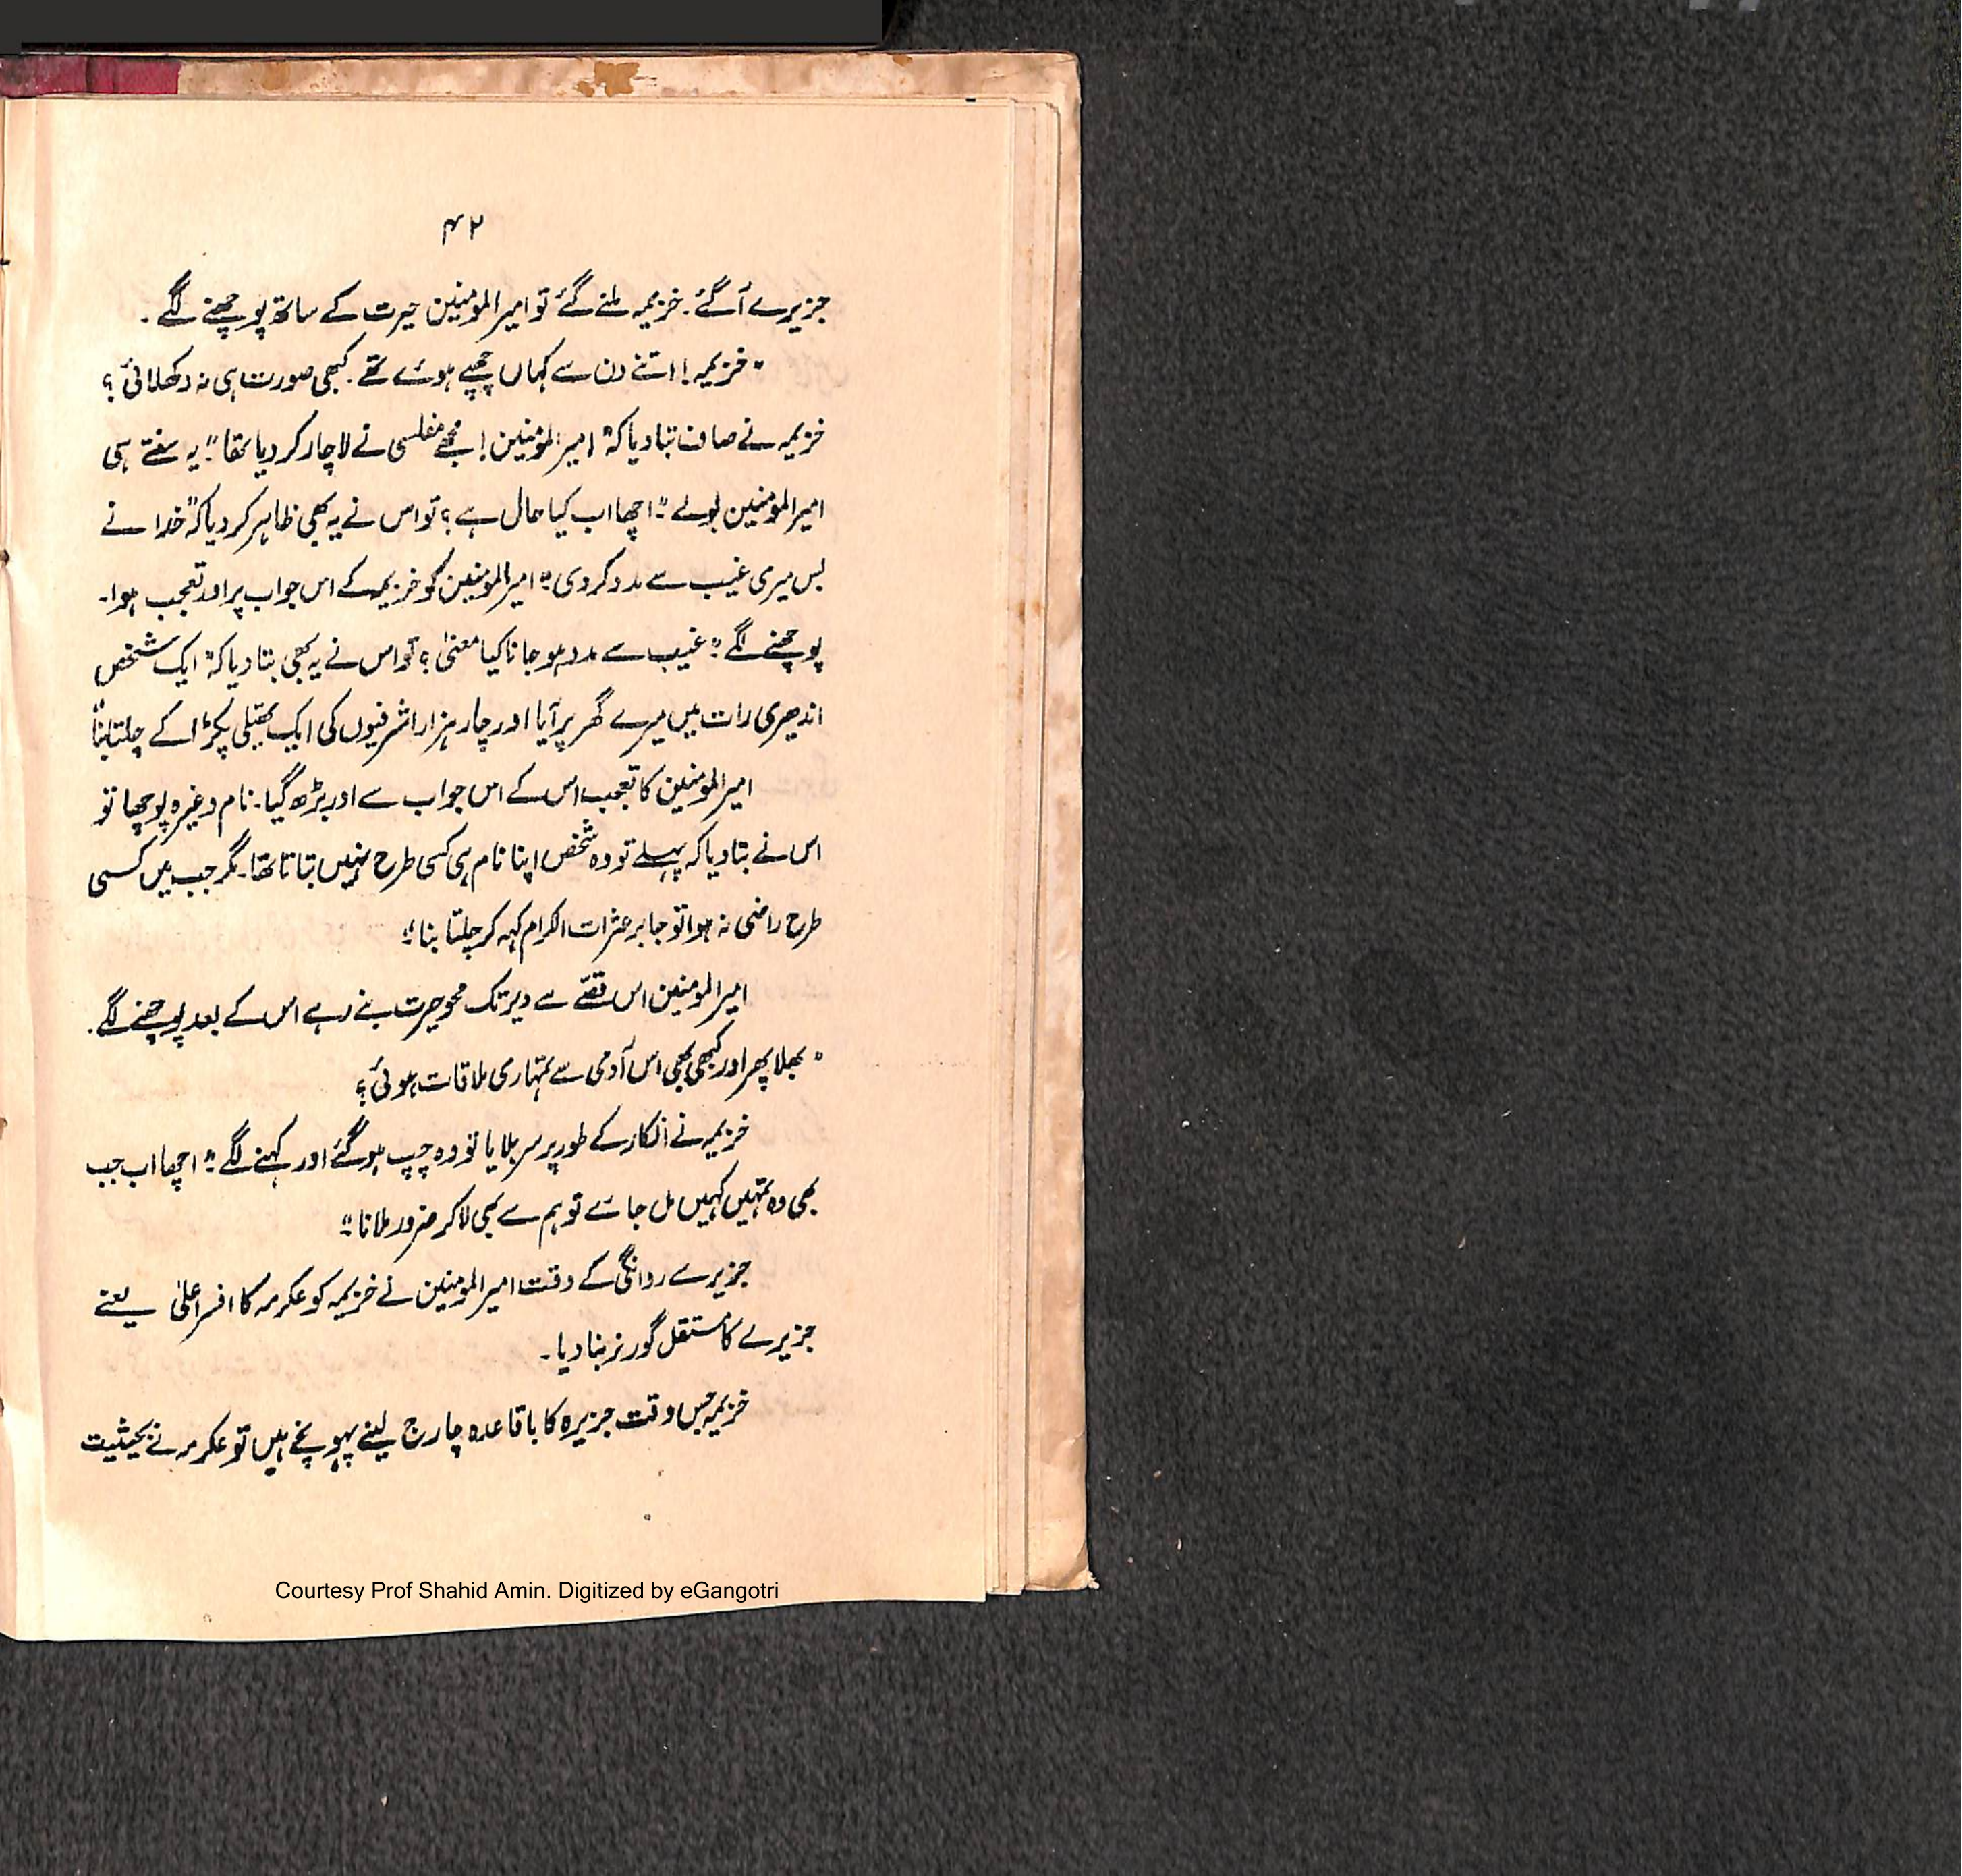 ۴۲
جزیرے آگئے. خزیمہ ملنے گئے تو امیر المومنین حیرت کے ساتھ پوچھنے لگے.
"خزیمہ! اتنے دن سے کہاں چھپے ہوئے تھے. کبھی صورت ہی نہ دکھلائی؟
خزیمہ نے صاف بتا دیا کہ" امیر المومنین! مجھے مفلسی نے لاچار کر دیا تھا" یہ سنتے ہی
امیر المومنین بولے" اچھا اب کیا حال ہے؟ تو اس نے یہ بھی ظاہر کر دیا کہ" خدا نے
بس میری غیب سے مدد کر دی" امیر المومنین کو خزیمہ کے اس جواب پر اور تعجب ہوا۔
پوچھنے لگے" غیب سے مدد ہو جانا کیا معنیٰ؟ تو اس نے یہ بھی بتا دیا کہ" ایک شخص
اندھیری رات میں میرے گھر پر آیا اور چار ہزار اشرفیوں کی ایک تھیلی پکڑا کے چلتا بنا"
امیر المومنین کا تعجب اس کے اس جواب سے اور بڑھ گیا۔ نام وغیرہ پوچھا تو
اس نے بتا دیا کہ پہلے تو وہ شخص اپنا نام ہی کسی طرح نہیں بتاتا تھا۔ مگر جب میں کسی
طرح راضی نہ ہوا تو جابر عثرات الکرام کہہ کر چلتا بنا"
امیر المومنین اس قصّے سے دیر تک محو حیرت بنے رہے اس کے بعد پوچھنے لگے.
"بھلا پھر اور کبھی بھی اس آدمی سے تمہاری ملاقات ہوئی؟
خزیمہ نے انکار کے طور پر سر ہلایا تو وہ چپ ہو گئے اور کہنے لگے" اچھا اب جب
بھی وہ تمہیں کہیں مل جائے تو ہم سے بھی لا کر ضرور ملانا"
جزیرے روانگی کے وقت امیر المومنین نے خزیمہ کو عکرمہ کا افسر اعلیٰ یعنے
جزیرے کا مستقل گورنر بنا دیا۔
خزیمہ جس وقت جزیرہ کا باقاعدہ چارج لینے پہونچے ہیں تو عکرمہ نے بحیثیت
Courtesy Prof Shahid Amin. Digitized by eGangotri